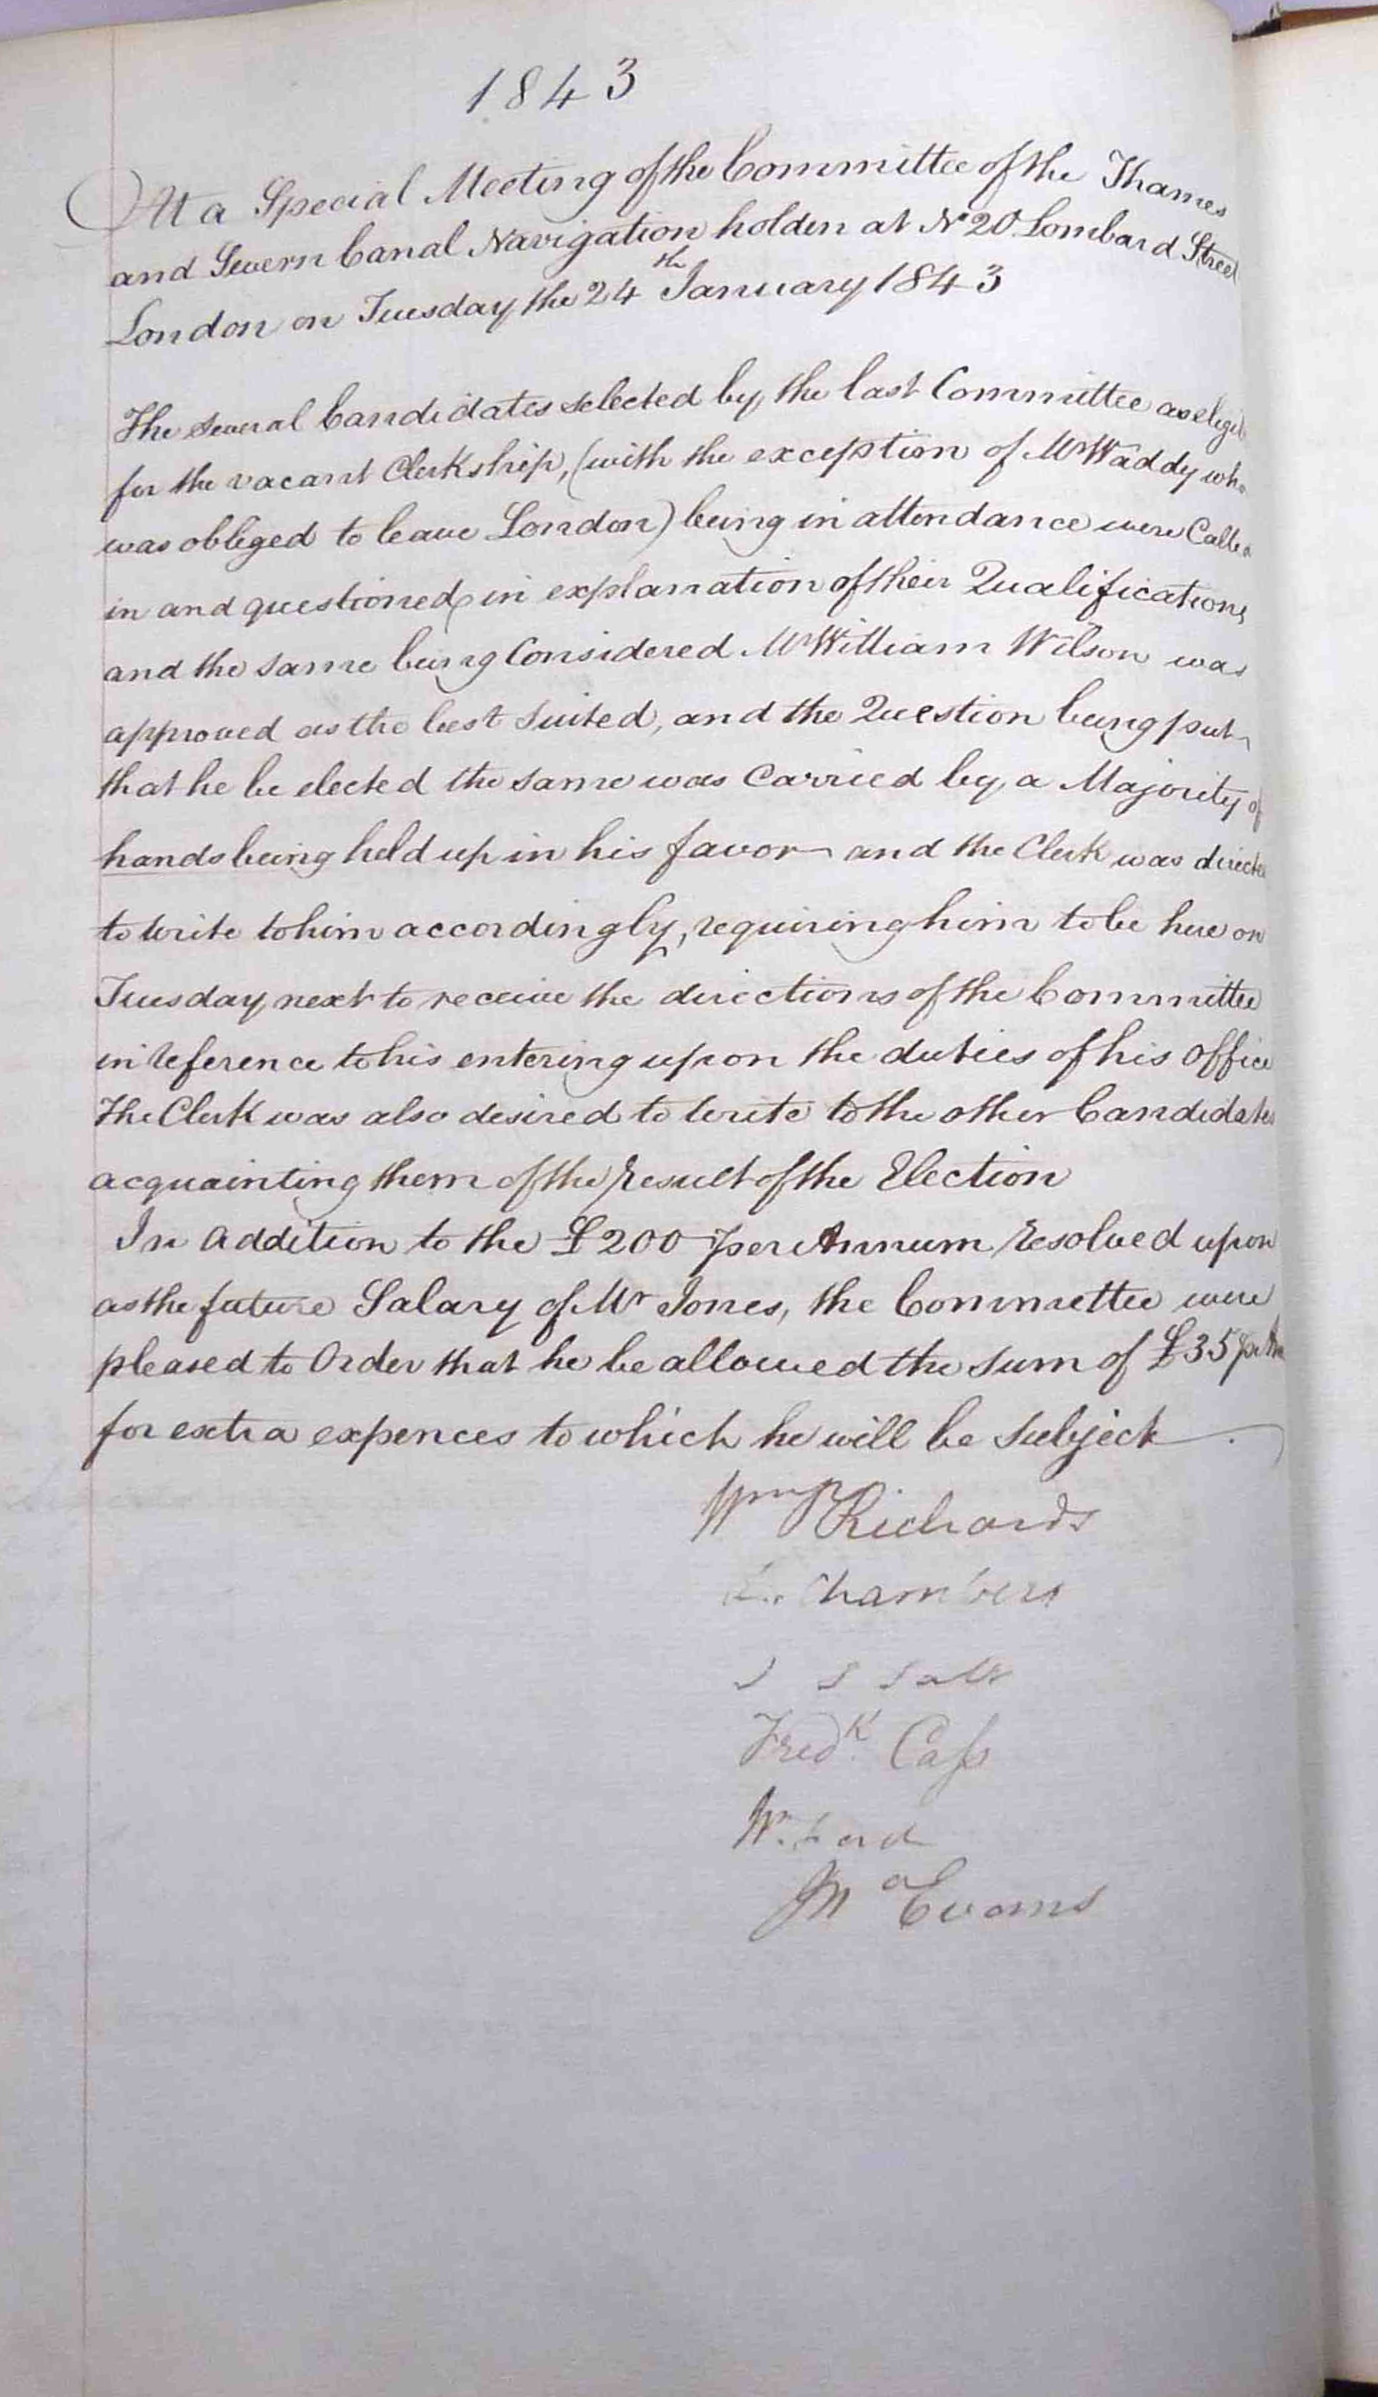 1843
At a Special Meeting of the Committee of the Thames
and Severn Canal Navigation holden at No 20 Lombard Street
London on Tuesday the 24th January 1843
The several Candidates selected by the last Committee as eligi
for the vacant Clerkship, (with the exception of Mr Waddy who
was obliged to leave London) being in attendance were Called
in and questioned in explanation of their Qualifications
and the same being Considered Mr William Wilson was
approved as the best suited, and the Question being put
that he be elected the same was Carried by a Majority of
hands being held up in his favor and the Clerk was directed
to write to him accordingly, requiring him to be here on
Tuesday next to receive the directions of the Committee
in reference to his entering upon the duties of his office
The Clerk was also desired to write to the other Candidates
acquainting them of the Result of the Election
In Addition to the £200 per Annum resolved upon
as the future Salary of Mr Jones, the Committee were
pleased to Order that he be allowed the sum of £35 pr An
for extra expences to which he will be Subject
Wm P Richards
Chambers
J S Salt
Fredk. Cass
Wm Ford
Evans